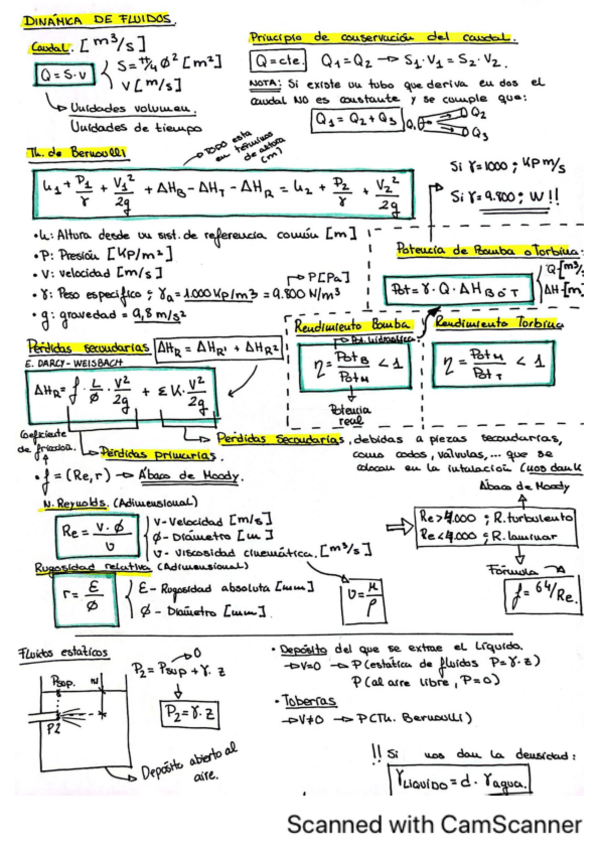 DINÁMICA DE FLUIDOS.
Caudal. [m³/s]
Q = S·V
S = π/4 ø² [m²]
V [m/s]
Unidades volumen.
Unidades de tiempo
Principio de conservación del caudal.
Q = cte. Q1 = Q2 → S1·V1 = S2·V2.
NOTA: Si existe un tubo que deriva en dos el
caudal NO es constante y se cumple que:
Q1 = Q2 + Q3
Q1 Q2
Q3
Th. de Bernoulli
→ TODO esta
en términos
de altura
(m)
h1 + P1/γ + V1²/2g + ΔHB - ΔHT - ΔHR = h2 + P2/γ + V2²/2g
Si γ=1000 ; Kpm/s
Si γ=9.800 ; W !!
• h: Altura desde un sist. de referencia común [m]
• P: Presión [KP/m²]
→ P[Pa]
• V: velocidad [m/s]
• γ: Peso específico ; γa = 1.000 Kp/m3 = 9.800 N/m³
• g: gravedad = 9,8 m/s²
Potencia de Bomba o Torbina:
Pot = γ·Q·ΔH B ó T
Q-[m³/
ΔH-[m]
Rendimiento Bomba
→ Pot. hidráulica
η = PotB/PotM < 1
Potencia
real
Rendimiento Torbina
η = PotM/PotT < 1
Pérdidas secundarias ΔHR = ΔHR1 + ΔHR2
E. DARCY-WEISBACH
ΔHR = f · L/ø · V²/2g + ΣK · V²/2g
Coeficiente
de fricción.
→ Pérdidas primarias.
→ Perdidas Secundarias, debidas a piezas secundarias,
como codos, válvulas,... que se
colocan en la intalación (nos dan K
• f = (Re, r) → Ábaco de Moody.
Ábaco de Moody
N. Reynolds. (Adimensional)
Re = V·ø/υ
V-Velocidad [m/s]
ø-Diámetro [m]
υ-Viscosidad cinemática. [m²/s]
Re>4.000 ; R. turbulento
Re<4.000 ; R. laminar
Fórmula
f = 64/Re.
Rugosidad relativa (Adimensional)
r = ε/ø
ε-Rugosidad absoluta [mm]
ø-Diámetro [mm].
υ = μ/ρ
Fluidos estáticos
Psup.
z
P2
→ 0
P2 = Psup + γ. z
P2 = γ. z
→ Depósito abierto al
aire.
• Depósito del que se extrae el Líquido.
→ V=0 → P (estática de fluidos P=γ·z)
P (al aire libre, P=0)
• Toberías
→ V≠0 → P (Th. Bernoulli)
!! Si nos dan la densidad:
γLIQUIDO = d · γagua.
Scanned with CamScanner